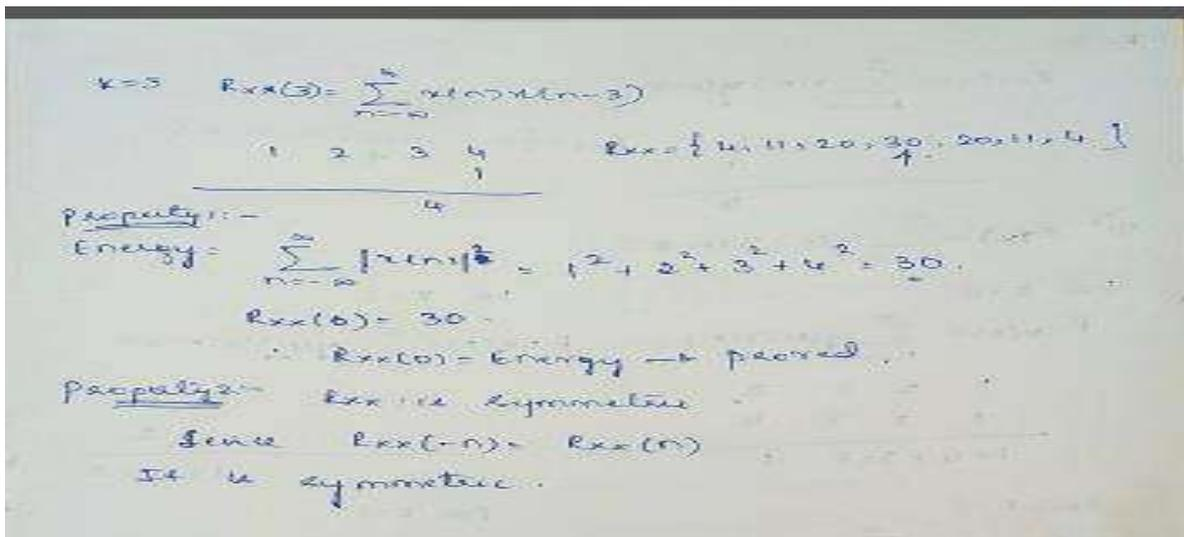 k=3 Rxx(3)= ∞∑n=-∞ x(n)x(n-3)
1 2 3 4 Rxx={4,11,20,30,20,11,4}
1 ↑
4
Property1:-
Energy= ∞∑n=-∞ |x(n)|² = 1²+2²+3²+4²=30.
Rxx(0)= 30.
∴ Rxx(0)= Energy → proved.
Property2:- Rxx is symmetric
Rxx(-n)= Rxx(n)
It is symmetric.